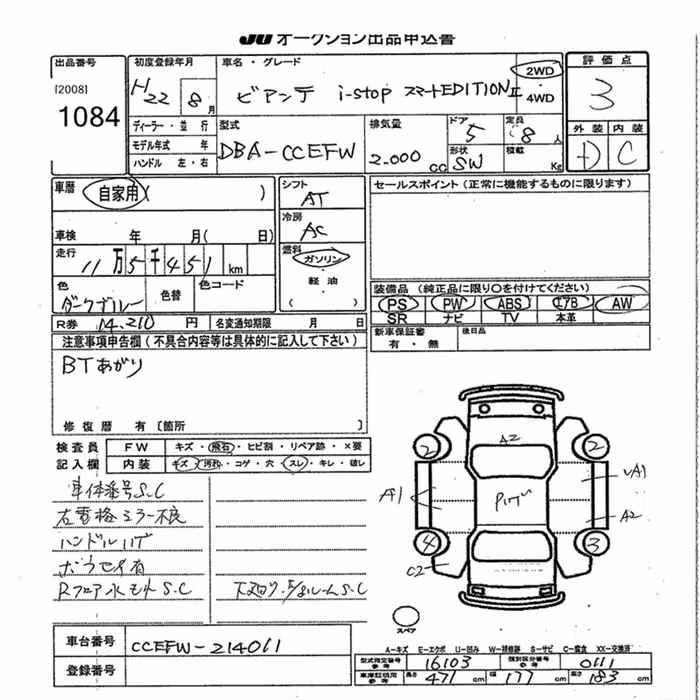 JU オークション出品申込書
出品番号
[2008]
1084
初度登録年月
H22 8月
ディーラー・並 行
モデル年式 年
ハンドル 左・右
車名・グレード
ビアンテ i-stop スマートEDITION II
2WD
4WD
型式
DBA-CCEFW
排気量
2.000 cc
ドア
5
定員
8人
形状
SW
積載
Kg
評価点
3
外装 内装
D C
車歴
自家用( )
車検 年 月( 日)
走行
11万5千451km
色
ダークブルー
色替
色コード
シフト
AT
冷房
AC
燃料
ガソリン
軽油
セールスポイント(正常に機能するものに限ります)
装備品(純正品に限り○を付けてください)
PS PW ABS エアB AW
SR ナビ TV 本革
R券 14.210 円
名変通知期限 月 日
新車保証書
有・無
後日品
注意事項申告欄(不具合内容等は具体的に記入して下さい)
BTあがり
修復歴 有 [箇所 ]
検査員
記入欄
FW キズ・飛石・ヒビ割・リペア跡・×要
内装 キズ・汚れ・コゲ・穴・スレ・キレ・破レ
車体番号S.C
左電格ミラー不良
ハンドルハゲ
ホつセイ有
Rフロア水モレS.C
下廻り.E/gルームS.C
A2
2
2
A1
A1
A2
4
3
C2
スペア
A-キズ E-エクボ U-凹み W-補修跡 S-サビ C-腐食 XX-交換済
車台番号
CCEFW-214011
登録番号
型式指定番号
(参考)
16103
類別区分番号
(参考)
0111
車庫証明用
(参考)
長さ 471cm
幅 177cm
高さ 183cm